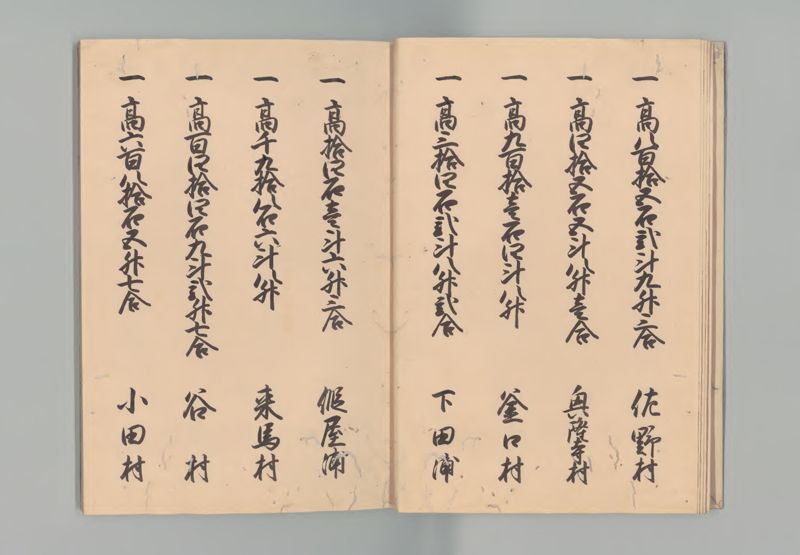 一高八百拾五石弐斗九升三合 佐野村
一高四拾五石五斗八升壱合 興隆寺村
一高九百拾壱石四斗八升 釜口村
一高三拾四石弐斗八升弐合 下田浦
一高拾四石壱斗六升三合 仮屋浦
一高千九拾八石六斗八升 来馬村
一高百四拾四石九斗弐升七合 谷村
一高六百八拾石五升七合 小田村